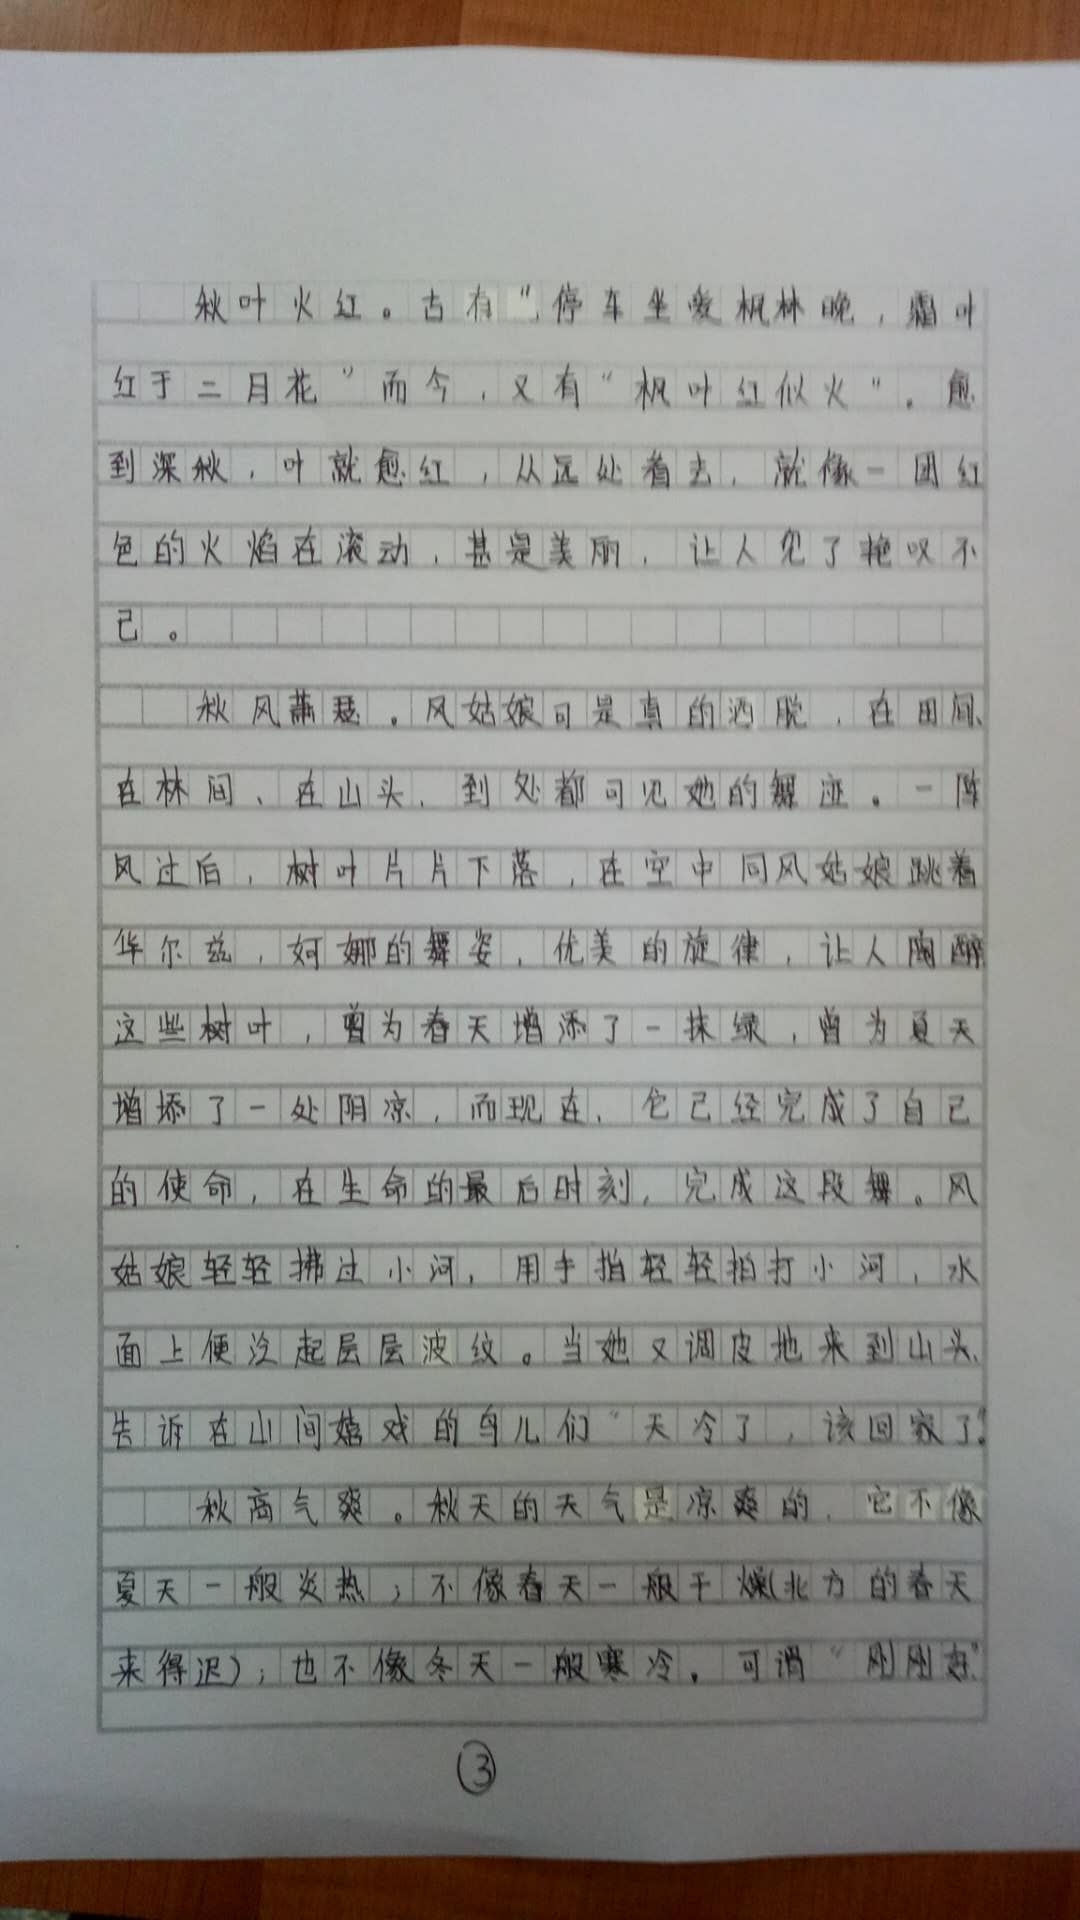 秋叶火红。古有“停车坐爱枫林晚，霜叶
红于二月花”而今，又有“枫叶红似火”。愈
到深秋，叶就愈红，从远处看去，就像一团红
色的火焰在滚动，甚是美丽，让人见了艳叹不
已。
秋风萧瑟。风姑娘可是真的洒脱，在田间、
在林间、在山头，到处都可见她的舞迹。一阵
风过后，树叶片片下落，在空中同风姑娘跳着
华尔兹，婀娜的舞姿，优美的旋律，让人陶醉
这些树叶，曾为春天增添了一抹绿，曾为夏天
增添了一处阴凉，而现在，它已经完成了自己
的使命，在生命的最后时刻，完成这段舞。风
姑娘轻轻拂过小河，用手拍轻轻拍打小河，水
面上便泛起层层波纹。当她又调皮地来到山头，
告诉在山间嬉戏的鸟儿们“天冷了，该回家了”。
秋高气爽。秋天的天气是凉爽的，它不像
夏天一般炎热；不像春天一般干燥（北方的春天
来得迟）；也不像冬天一般寒冷。可谓“刚刚好”
③